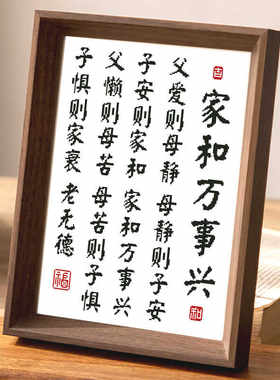 吉
家和万事兴
和
父爱则母静 母静则子安
子安则家和 家和万事兴
父懒则母苦 母苦则子惧
子惧则家衰 老无德
福